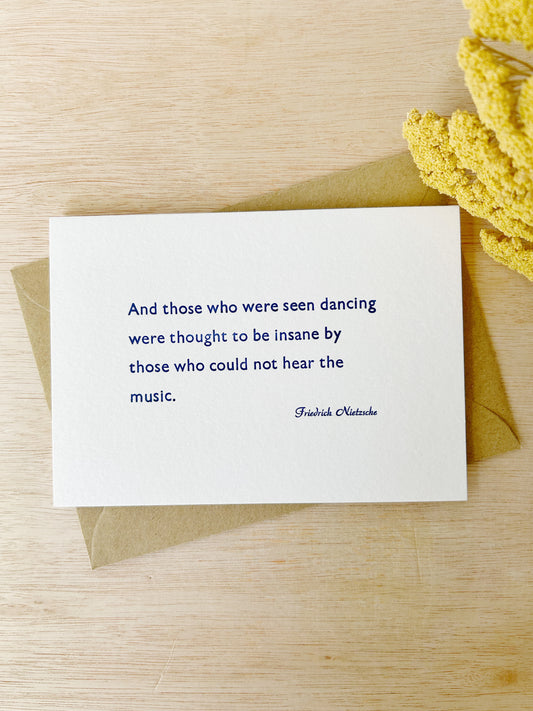 And those who were seen dancing
were thought to be insane by
those who could not hear the
music.
Friedrich Nietzsche